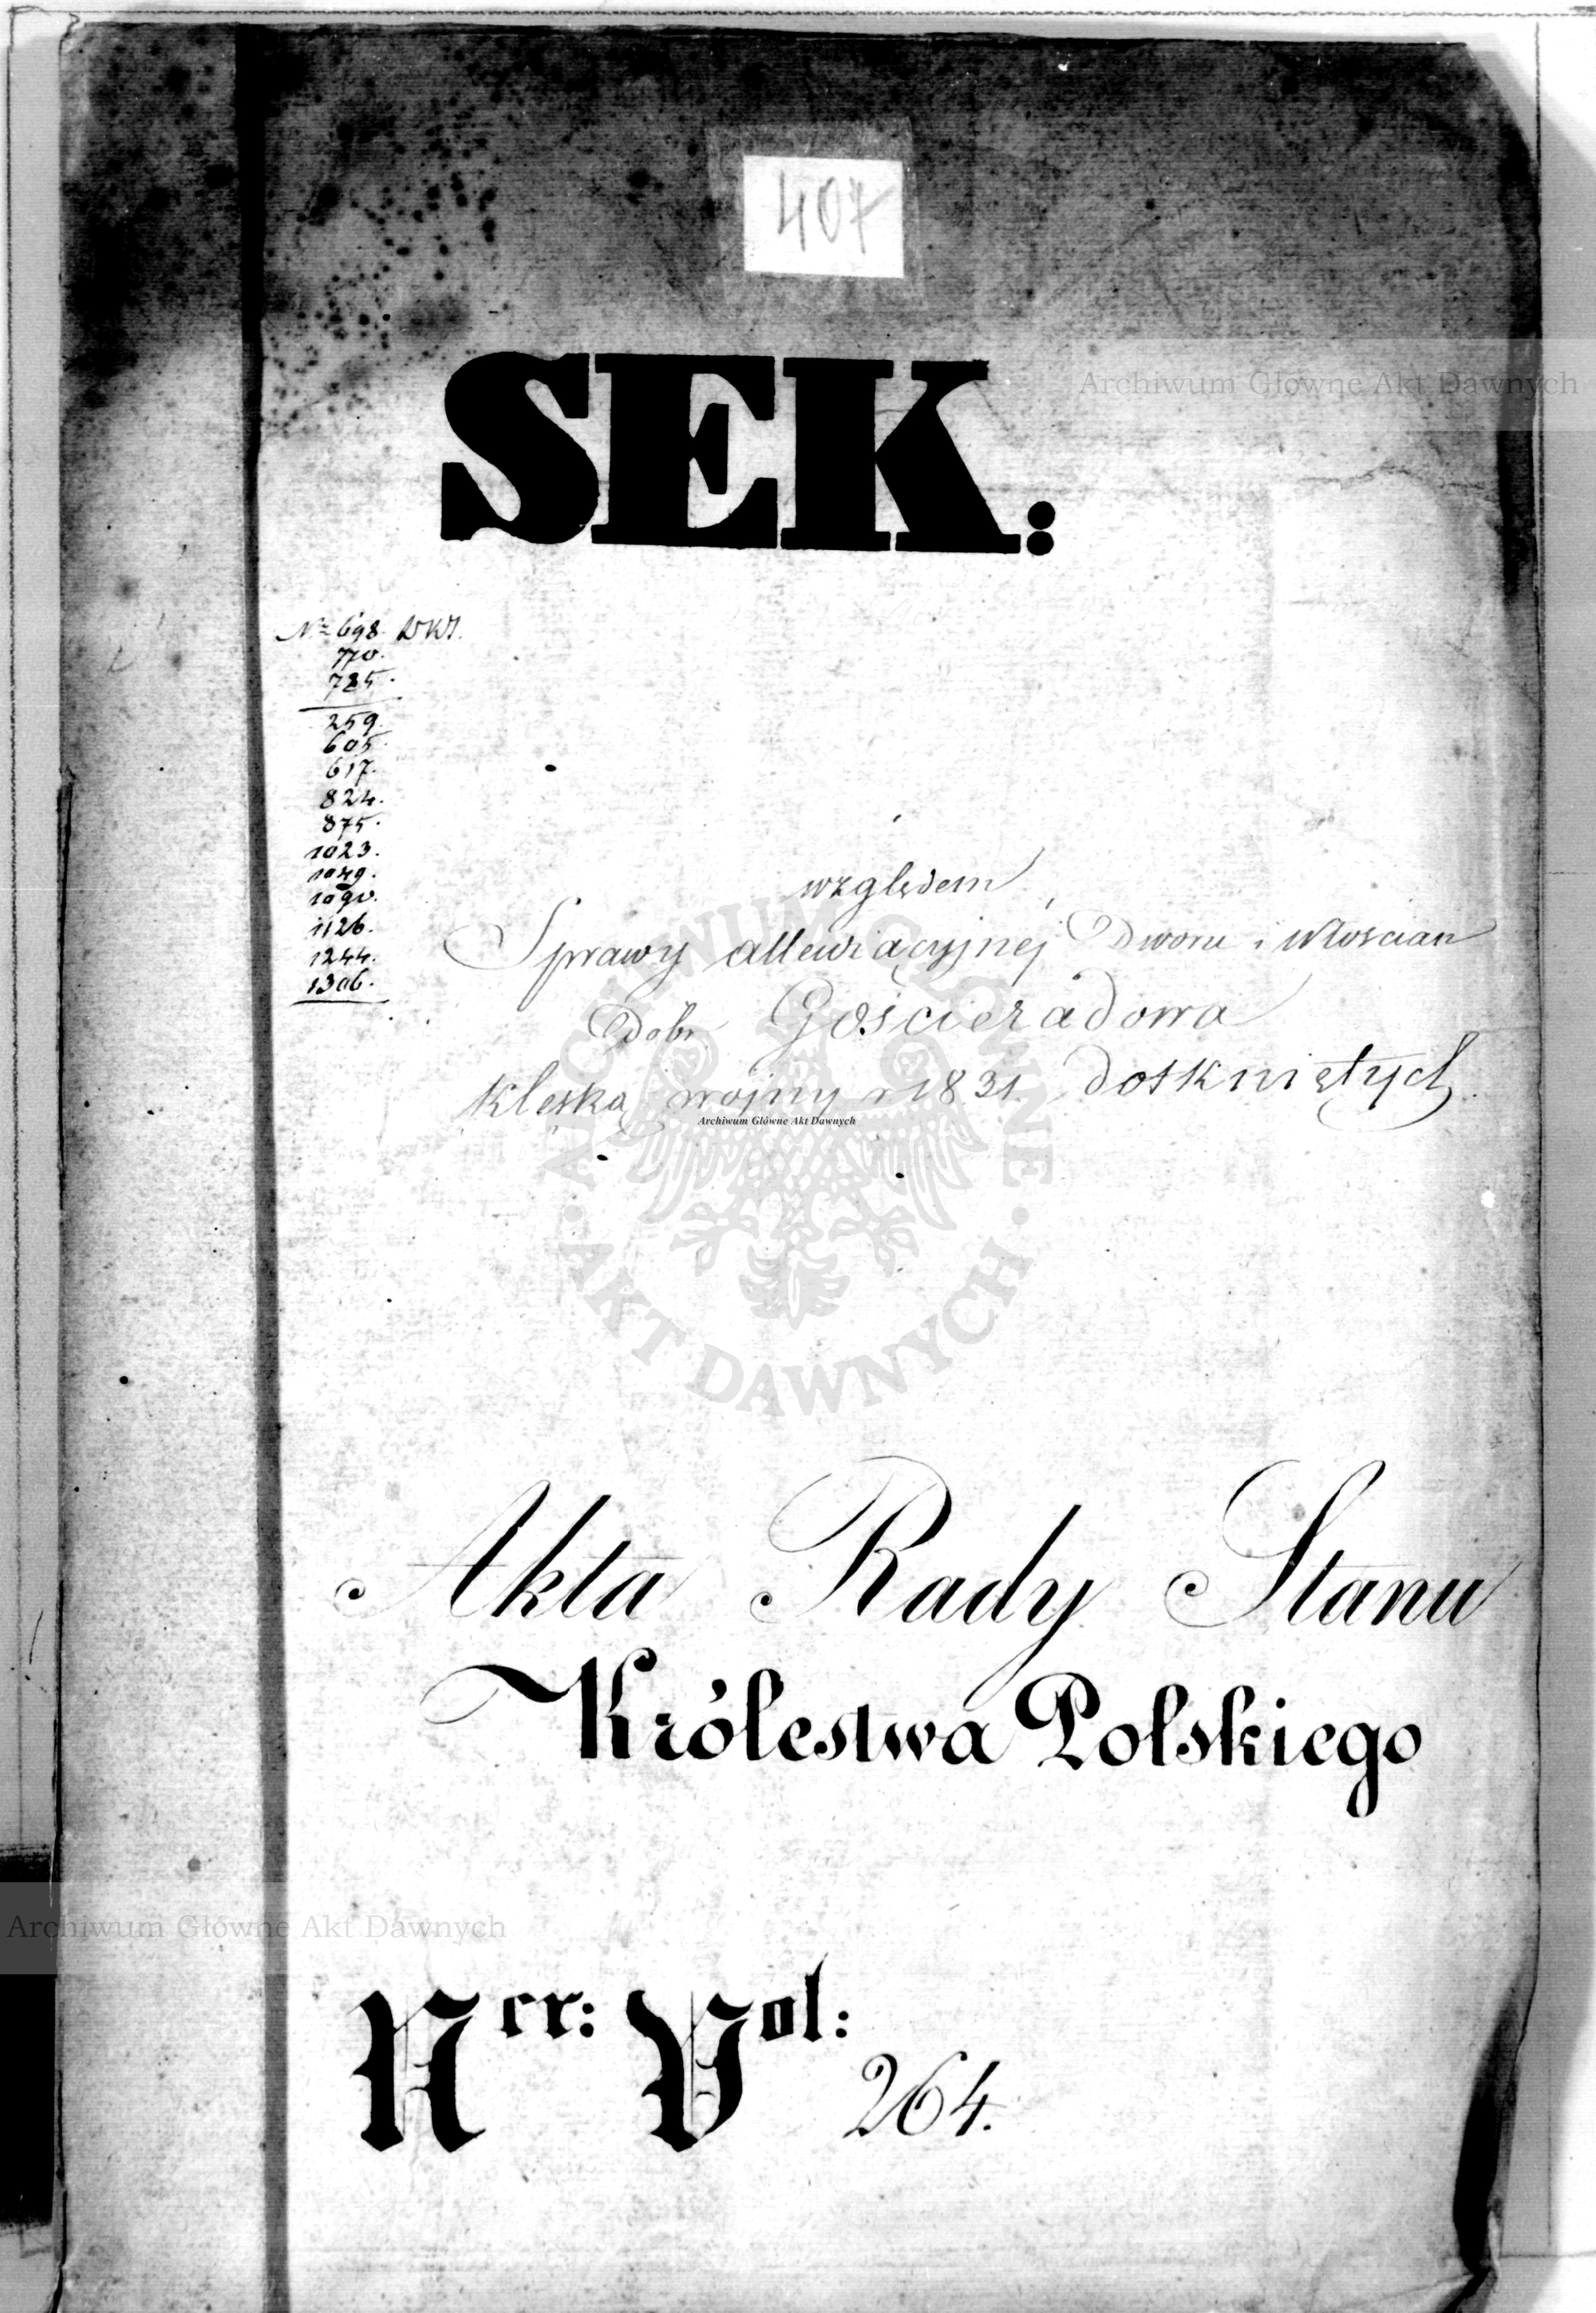 407
Archiwum Główne Akt Dawnych
SEK:
№ 698.
770.
785.
259.
605.
617.
824.
875.
1023.
1049.
1090.
1126.
1244.
1306.
względem
Sprawy allewiacyjnej Dworu i Włoscian
Dobr Gościeradowa
klęską wojny r 1831. dotkniętych.
Archiwum Główne Akt Dawnych
ARCHIWUM GŁÓWNE · AKT DAWNYCH ·
Akta Rady Stanu
Królestwa Polskiego
Archiwum Główne Akt Dawnych
Ner: Vol: 264.